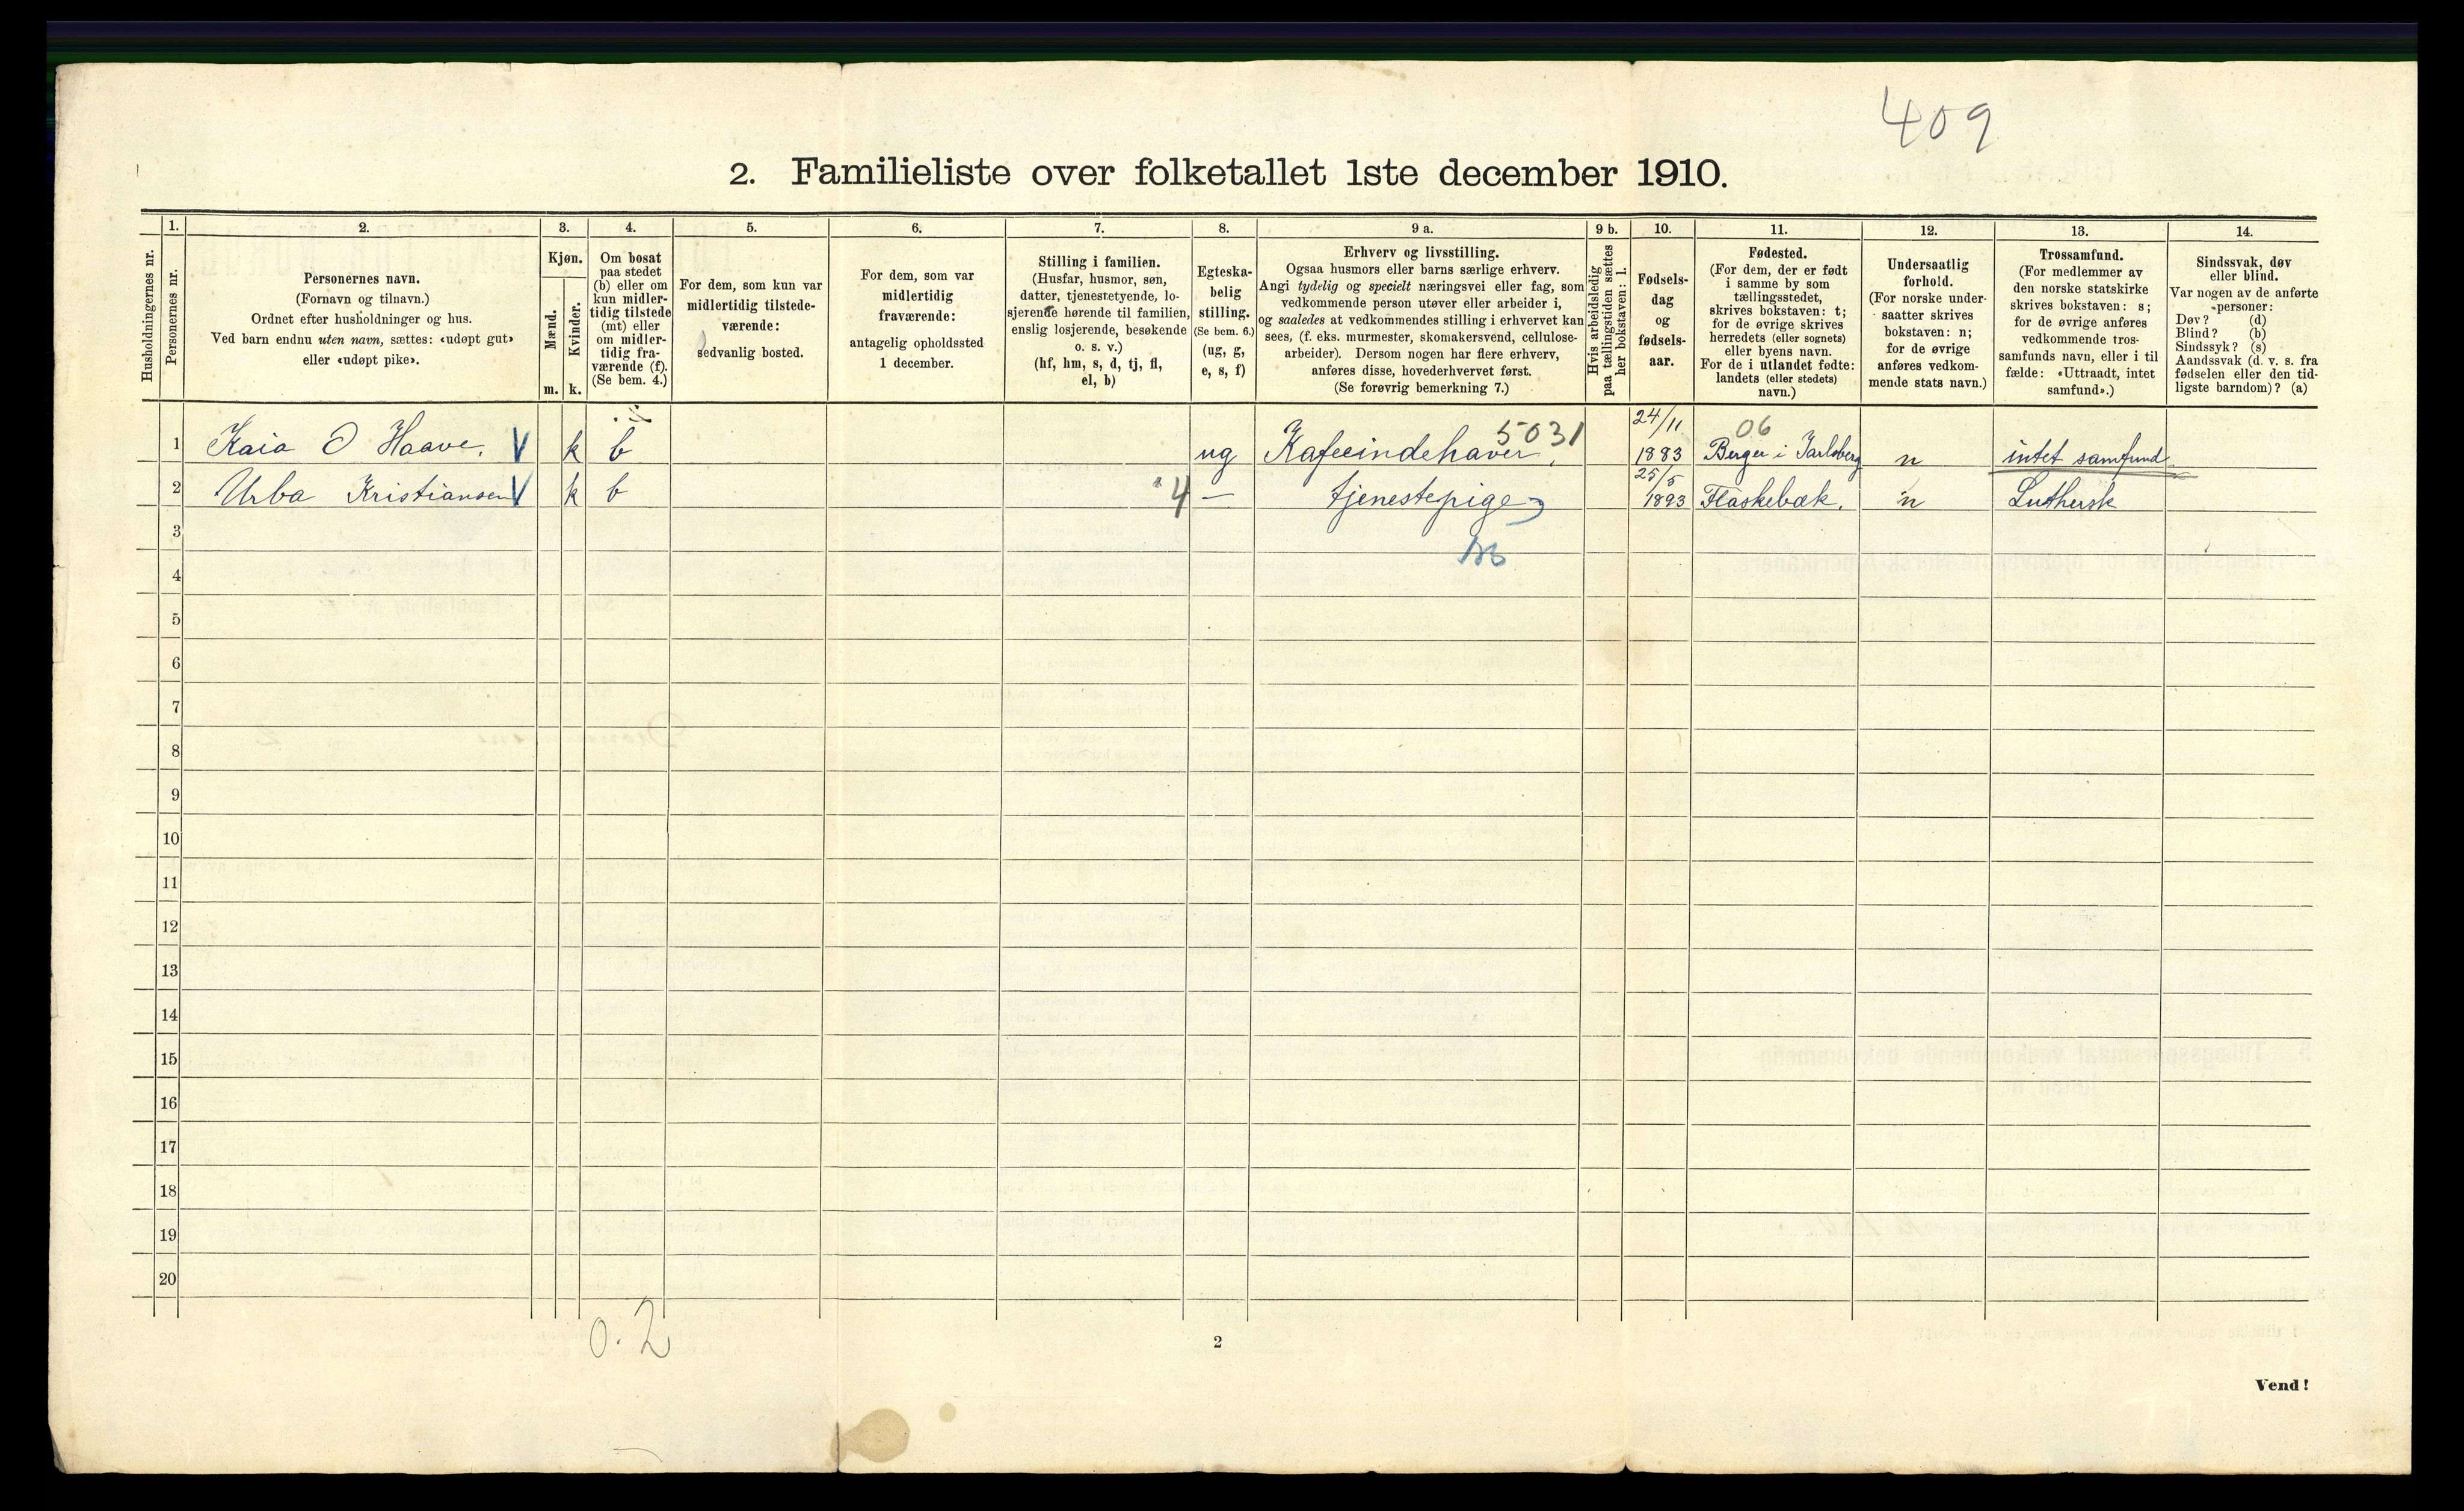 409
2. Familieliste over folketallet 1ste december 1910.
Husholdningernes nr.
1.
Personernes nr.
2.
Personernes navn.
(Fornavn og tilnavn.)
Ordnet efter husholdninger og hus.
Ved barn endnu uten navn, sættes: «udøpt gut»
eller «udøpt pike».
3.
Kjøn.
Mænd.
Kvinder.
m. k.
4.
Om bosat
paa stedet
(b) eller om
kun midler-
tidig tilstede
(mt) eller
om midler-
tidig fra-
værende (f).
(Se bem. 4.)
5.
For dem, som kun var
midlertidig tilstede-
værende:
sedvanlig bosted.
6.
For dem, som var
midlertidig
fraværende:
antagelig opholdssted
1 december.
7.
Stilling i familien.
(Husfar, husmor, søn,
datter, tjenestetyende, lo-
sjerende hørende til familien,
enslig losjerende, besøkende
o. s. v.)
(hf, hm, s, d, tj, fl,
el, b)
8.
Egteska-
belig
stilling.
(Se bem. 6.)
(ug, g,
e, s, f)
9 a.
Erhverv og livsstilling.
Ogsaa husmors eller barns særlige erhverv.
Angi tydelig og specielt næringsvei eller fag, som
vedkommende person utøver eller arbeider i,
og saaledes at vedkommendes stilling i erhvervet kan
sees, (f. eks. murmester, skomakersvend, cellulose-
arbeider). Dersom nogen har flere erhverv,
anføres disse, hovederhvervet først.
(Se forøvrig bemerkning 7.)
9 b.
Hvis arbeidsledig
paa tællingstiden sættes
her bokstaven: l.
10.
Fødsels-
dag
og
fødsels-
aar.
11.
Fødested.
(For dem, der er født
i samme by som
tællingsstedet,
skrives bokstaven: t;
for de øvrige skrives
herredets (eller sognets)
eller byens navn.
For de i utlandet fødte:
landets (eller stedets)
navn.)
12.
Undersaatlig
forhold.
(For norske under-
saatter skrives
bokstaven: n;
for de øvrige
anføres vedkom-
mende stats navn.)
13.
Trossamfund.
(For medlemmer av
den norske statskirke
skrives bokstaven: s;
for de øvrige anføres
vedkommende tros-
samfunds navn, eller i til
fælde: «Uttraadt, intet
samfund».)
14.
Sindssvak, døv
eller blind.
Var nogen av de anførte
personer:
Døv? (d)
Blind? (b)
Sindssyk? (s)
Aandssvak (d. v. s. fra
fødselen eller den tid-
ligste barndom)? (a)
1 Kaia O Haave. V k b ug Kafeeindehaver. 5031 24/11 1883 06 Berger i Jarlsberg n intet samfund
2 Urba Kristiansen V k b 4 — tjenestepige 25/5 1893 Flaskebæk. n Luthersk
3
4
5
6
7
8
9
10
11
12
13
14
15
16
17
18
19
20
0.2
2
Vend!